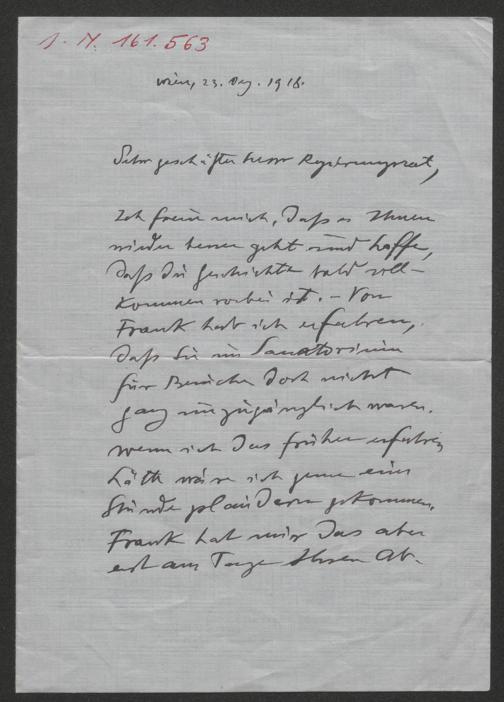 J. N. 161.563
Wien, 23. Dez. 1918.
Sehr geschätzter Herr Regierungsrat,
Ich freue mich, daß es Ihnen
wieder besser geht und hoffe,
daß die Geschichte bald voll-
kommen vorbei ist. – Von
Frank hab ich erfahren,
daß Sie im Sanatorium
für Besuche doch nicht
ganz unzugänglich waren.
Wenn ich das früher erfahren
hätte wäre ich gerne eine
Stunde plaudern gekommen.
Frank hat mir das aber
erst am Tage Ihrer Ab-